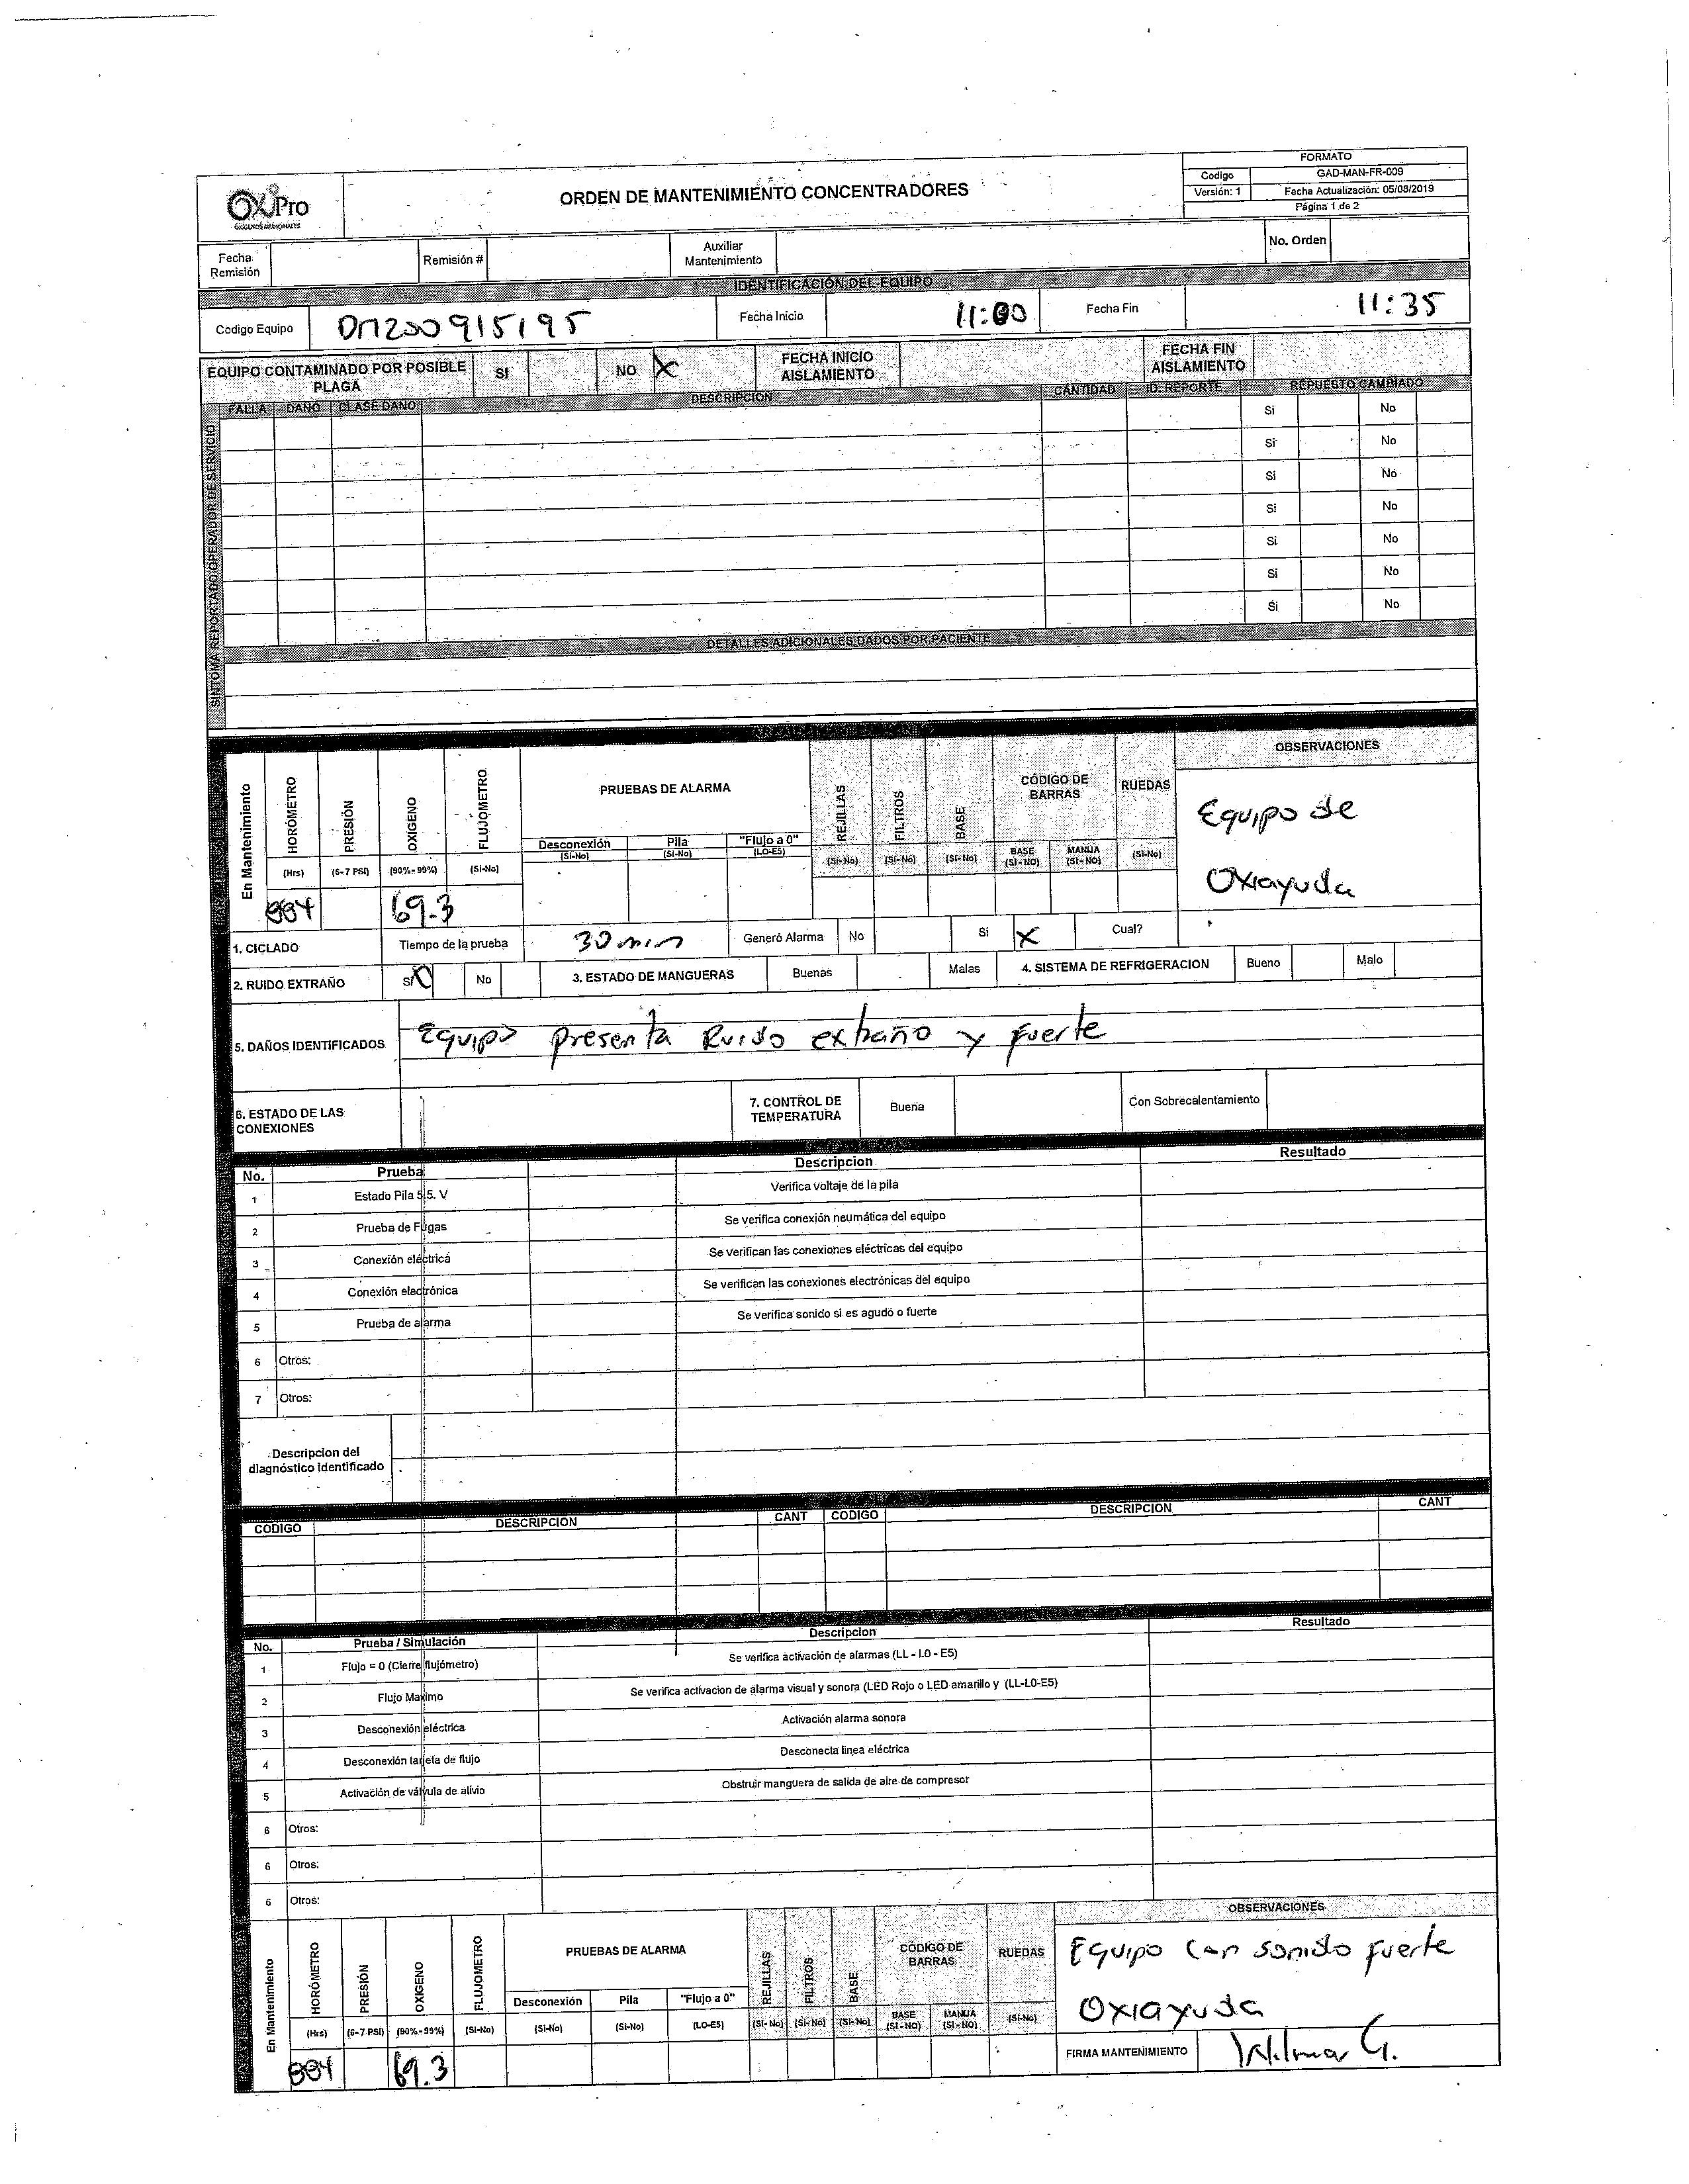 FORMATO
Codigo GAD-MAN-FR-009
Versión: 1 Fecha Actualización: 05/08/2019
Página 1 de 2
OXiPro
ORDEN DE MANTENIMIENTO CONCENTRADORES
Fecha Remisión Remisión # Auxiliar Mantenimiento No. Orden
IDENTIFICACIÓN DEL EQUIPO
Codigo Equipo DM200915195 Fecha Inicio 11:00 Fecha Fin 11:35
EQUIPO CONTAMINADO POR POSIBLE PLAGA SI NO X FECHA INICIO AISLAMIENTO FECHA FIN AISLAMIENTO
SINTOMA REPORTADO OPERADOR DE SERVICIO
FALLA DAÑO CLASE DAÑO DESCRIPCION CANTIDAD ID. REPORTE REPUESTO CAMBIADO
Si No
Si No
Si No
Si No
Si No
Si No
Si No
DETALLES ADICIONALES DADOS POR PACIENTE
En Mantenimiento HORÓMETRO PRESIÓN OXIGENO FLUJOMETRO PRUEBAS DE ALARMA REJILLAS FILTROS BASE CÓDIGO DE BARRAS RUEDAS OBSERVACIONES
Desconexión Pila "Flujo a 0" BASE MANIJA
(Hrs) (6-7 PSI) (90%-99%) (SI-No) (Si-No) (Si-No) (LO-E5) (Si-No) (Si-No) (Si-No) (SI-NO) (SI-NO) (Si-No)
Equipo de
Oxiayuda
884 69.3
1. CICLADO Tiempo de la prueba 30 min Generó Alarma No Si X Cual?
2. RUIDO EXTRAÑO Si No 3. ESTADO DE MANGUERAS Buenas Malas 4. SISTEMA DE REFRIGERACION Bueno Malo
5. DAÑOS IDENTIFICADOS Equipo presenta Ruido extraño y fuerte
6. ESTADO DE LAS CONEXIONES 7. CONTROL DE TEMPERATURA Buena Con Sobrecalentamiento
No. Prueba Descripcion Resultado
1 Estado Pila 5.5. V Verifica voltaje de la pila
2 Prueba de Fugas Se verifica conexión neumática del equipo
3 Conexión eléctrica Se verifican las conexiones eléctricas del equipo
4 Conexión electrónica Se verifican las conexiones electrónicas del equipo
5 Prueba de alarma Se verifica sonido si es agudo o fuerte
6 Otros:
7 Otros:
Descripcion del diagnóstico identificado
CODIGO DESCRIPCION CANT CODIGO DESCRIPCION CANT
No. Prueba / Simulación Descripcion Resultado
1 Flujo = 0 (Cierre flujómetro) Se verifica activación de alarmas (LL - L0 - E5)
2 Flujo Maximo Se verifica activacion de alarma visual y sonora (LED Rojo o LED amarillo y (LL-L0-E5)
3 Desconexión eléctrica Activación alarma sonora
4 Desconexión tarjeta de flujo Desconecta linea eléctrica
5 Activación de válvula de alivio Obstruir manguera de salida de aire de compresor
6 Otros:
6 Otros:
6 Otros:
En Mantenimiento HORÓMETRO PRESIÓN OXIGENO FLUJOMETRO PRUEBAS DE ALARMA REJILLAS FILTROS BASE CÓDIGO DE BARRAS RUEDAS OBSERVACIONES
Desconexión Pila "Flujo a 0" BASE MANIJA
(Hrs) (6-7 PSI) (90%-99%) (SI-No) (Si-No) (Si-No) (LO-E5) (SI-No) (Si-No) (Si-No) (SI-NO) (SI-NO) (Si-No)
Equipo con sonido fuerte
Oxiayuda
884 69.3
FIRMA MANTENIMIENTO Wilmar G.